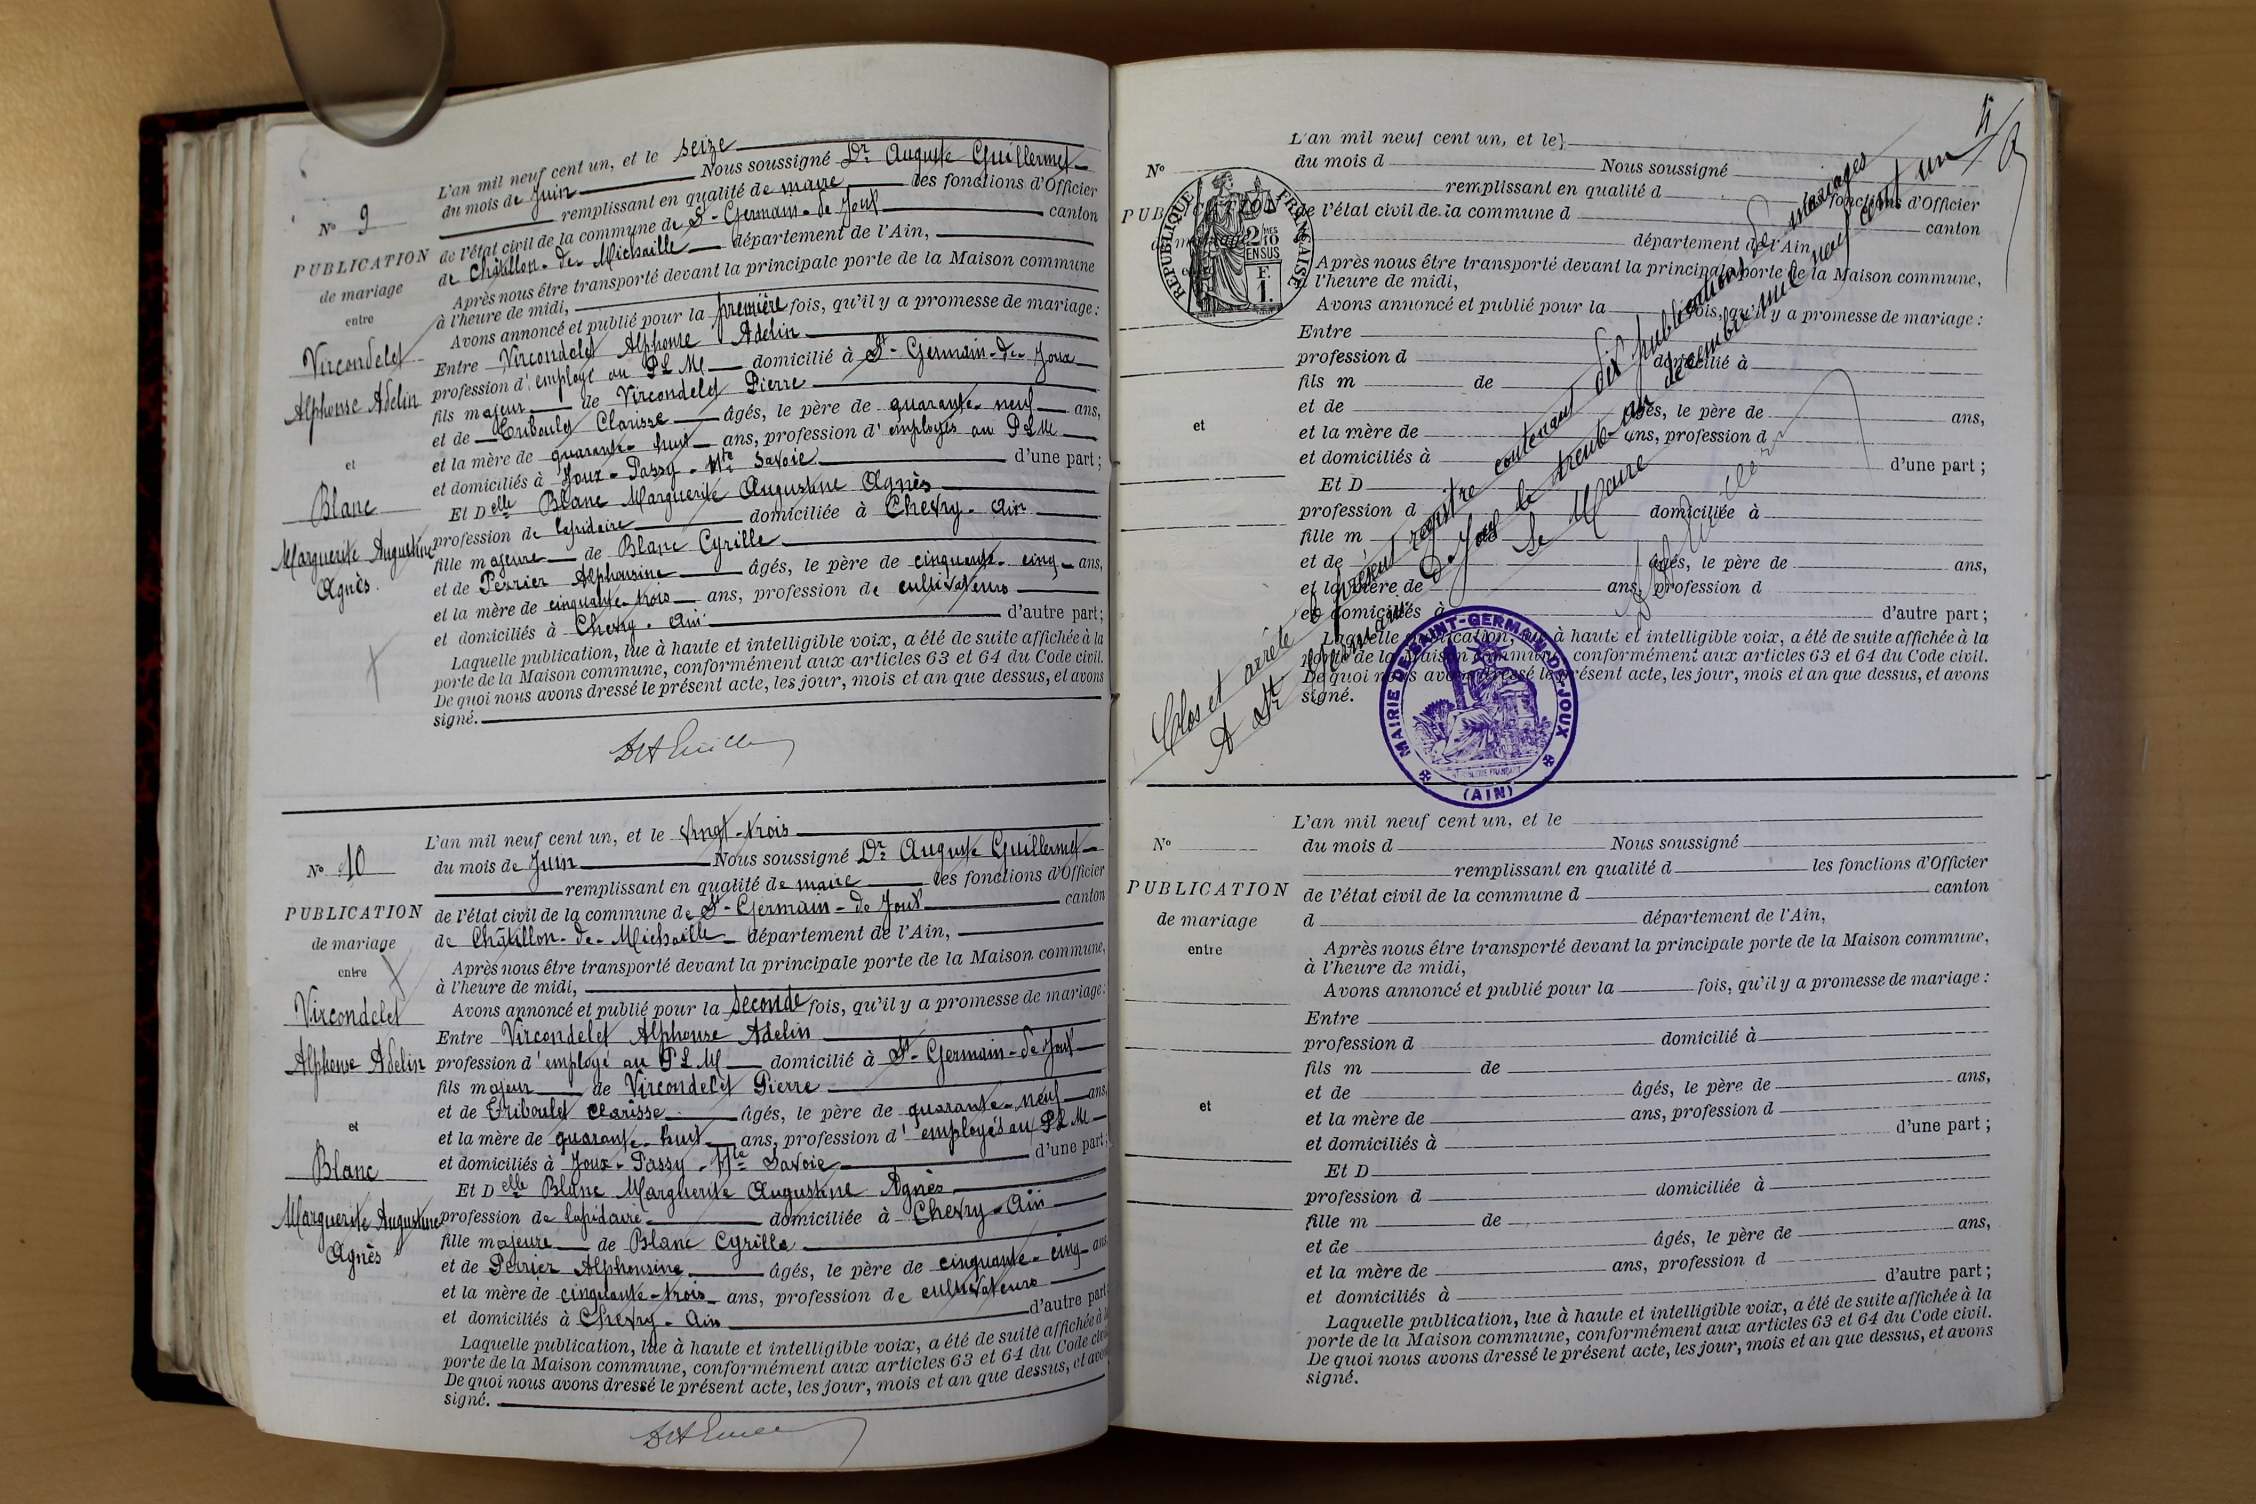 L'an mil neuf cent un, et le seize
du mois de Juin Nous soussigné Dr Auguste Guillermet
remplissant en qualité de maire les fonctions d'Officier
de l'état civil de la commune de St-Germain-de-Joux canton
de Châtillon-de-Michaille département de l'Ain,
Après nous être transporté devant la principale porte de la Maison commune
à l'heure de midi,
Avons annoncé et publié pour la première fois, qu'il y a promesse de mariage :
Entre Vircondelet Alphonse Adelin
profession d'employé au PLM domicilié à St-Germain-de-Joux
fils majeur de Vircondelet Pierre
et de Triboulet Clarisse âgés, le père de quarante-neuf ans,
et la mère de quarante-huit ans, profession d'employés au PLM
et domiciliés à Joux-Passy-Hte Savoie d'une part ;
Et Delle Blanc Marguerite Augustine Agnès
profession de lapidaire domiciliée à Chevry-Ain
fille majeure de Blanc Cyrille
et de Perrier Alphonsine âgés, le père de cinquante-cinq ans,
et la mère de cinquante-trois ans, profession de cultivateurs
et domiciliés à Chevry-Ain d'autre part ;
Laquelle publication, lue à haute et intelligible voix, a été de suite affichée à la
porte de la Maison commune, conformément aux articles 63 et 64 du Code civil.
De quoi nous avons dressé le présent acte, les jour, mois et an que dessus, et avons
signé.
No 9
PUBLICATION
de mariage
entre
Vircondelet
Alphonse Adelin
et
Blanc
Marguerite Augustine
Agnès.
L'an mil neuf cent un, et le vingt-trois
du mois de Juin Nous soussigné Dr Auguste Guillermet
remplissant en qualité de maire les fonctions d'Officier
de l'état civil de la commune de St-Germain-de-Joux canton
de Châtillon-de-Michaille département de l'Ain,
Après nous être transporté devant la principale porte de la Maison commune,
à l'heure de midi,
Avons annoncé et publié pour la seconde fois, qu'il y a promesse de mariage :
Entre Vircondelet Alphonse Adelin
profession d'employé au PLM domicilié à St-Germain-de-Joux
fils majeur de Vircondelet Pierre
et de Triboulet Clarisse âgés, le père de quarante-neuf ans,
et la mère de quarante-huit ans, profession d'employés au PLM
et domiciliés à Joux-Passy-Hte Savoie d'une part ;
Et Delle Blanc Marguerite Augustine Agnès
profession de lapidaire domiciliée à Chevry-Ain
fille majeure de Blanc Cyrille
et de Perrier Alphonsine âgés, le père de cinquante-cinq ans
et la mère de cinquante-trois ans, profession de cultivateurs
et domiciliés à Chevry-Ain d'autre part
Laquelle publication, lue à haute et intelligible voix, a été de suite affichée à la
porte de la Maison commune, conformément aux articles 63 et 64 du Code civil
De quoi nous avons dressé le présent acte, les jour, mois et an que dessus, et avons
signé.
No 10
PUBLICATION
de mariage
entre
Vircondelet
Alphonse Adelin
et
Blanc
Marguerite Augustine
Agnès
L'an mil neuf cent un, et le
du mois d Nous soussigné
remplissant en qualité d fonctions d'Officier
de l'état civil de la commune d canton
département de l'Ain,
Après nous être transporté devant la principale porte de la Maison commune,
à l'heure de midi,
Avons annoncé et publié pour la fois, qu'il y a promesse de mariage :
Entre
profession d domicilié à
fils m de
et de âgés, le père de ans,
et la mère de ans, profession d
et domiciliés à d'une part ;
Et D
profession d domiciliée à
fille m de
et de âgés, le père de ans,
et la mère de ans, profession d
et domiciliés à d'autre part ;
Laquelle publication, lue à haute et intelligible voix, a été de suite affichée à la
porte de la Maison commune, conformément aux articles 63 et 64 du Code civil.
De quoi nous avons dressé le présent acte, les jour, mois et an que dessus, et avons
signé.
No
PUBLICATION
et
RÉPUBLIQUE FRANÇAISE
2/10 MES
EN SUS
F.
1.
Clos et arrêté le présent registre contenant dix publications de mariages
A St Germain de Joux le trente-un décembre mil neuf cent un
Le Maire
MAIRIE DE SAINT-GERMAIN-DE-JOUX
(AIN)
L'an mil neuf cent un, et le
du mois d Nous soussigné
remplissant en qualité d les fonctions d'Officier
de l'état civil de la commune d canton
d département de l'Ain,
Après nous être transporté devant la principale porte de la Maison commune,
à l'heure de midi,
Avons annoncé et publié pour la fois, qu'il y a promesse de mariage :
Entre
profession d domicilié à
fils m de
et de âgés, le père de ans,
et la mère de ans, profession d
et domiciliés à d'une part ;
Et D
profession d domiciliée à
fille m de
et de âgés, le père de ans,
et la mère de ans, profession d
et domiciliés à d'autre part ;
Laquelle publication, lue à haute et intelligible voix, a été de suite affichée à la
porte de la Maison commune, conformément aux articles 63 et 64 du Code civil.
De quoi nous avons dressé le présent acte, les jour, mois et an que dessus, et avons
signé.
No
PUBLICATION
de mariage
entre
et